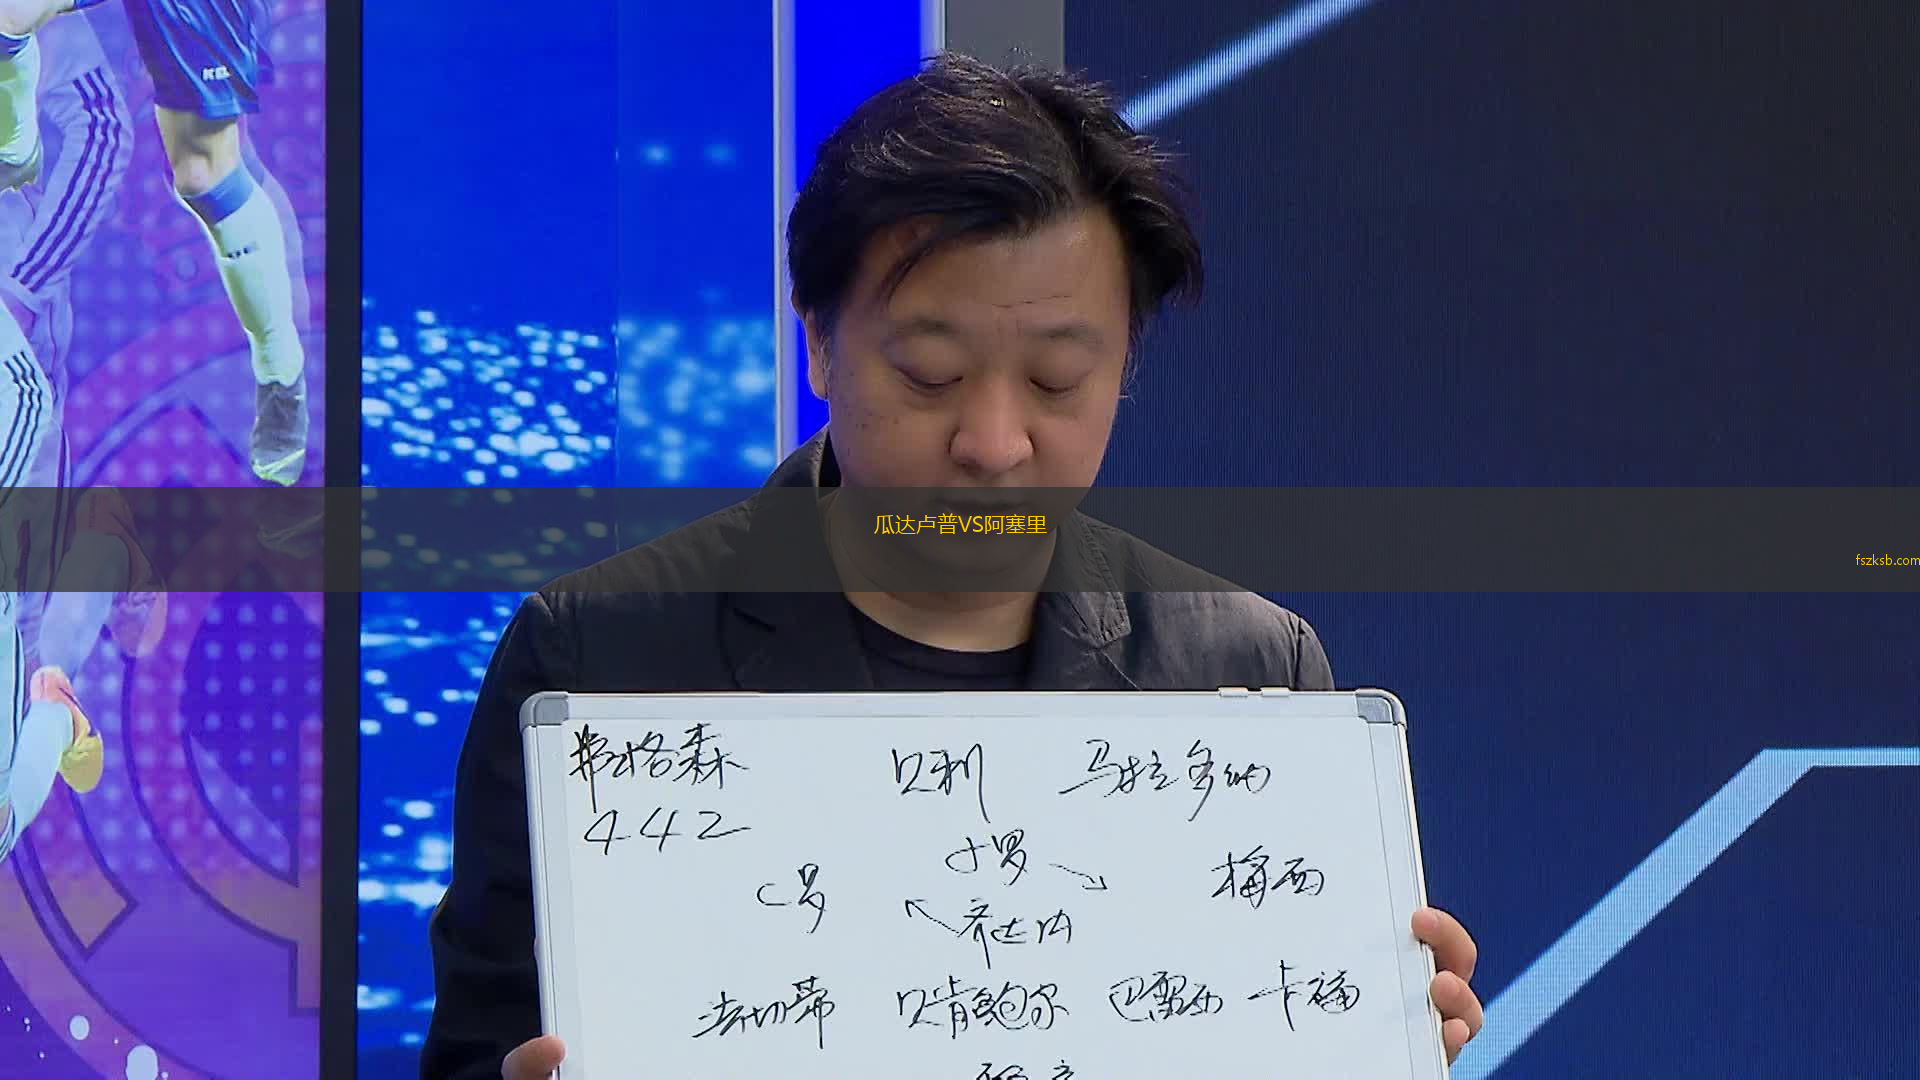 瓜达卢普VS阿塞里
fszksb.com
弗格森 贝利 马拉多纳
442
小罗
C罗 梅西
齐达内
法切蒂 贝肯鲍尔 巴雷西 卡福